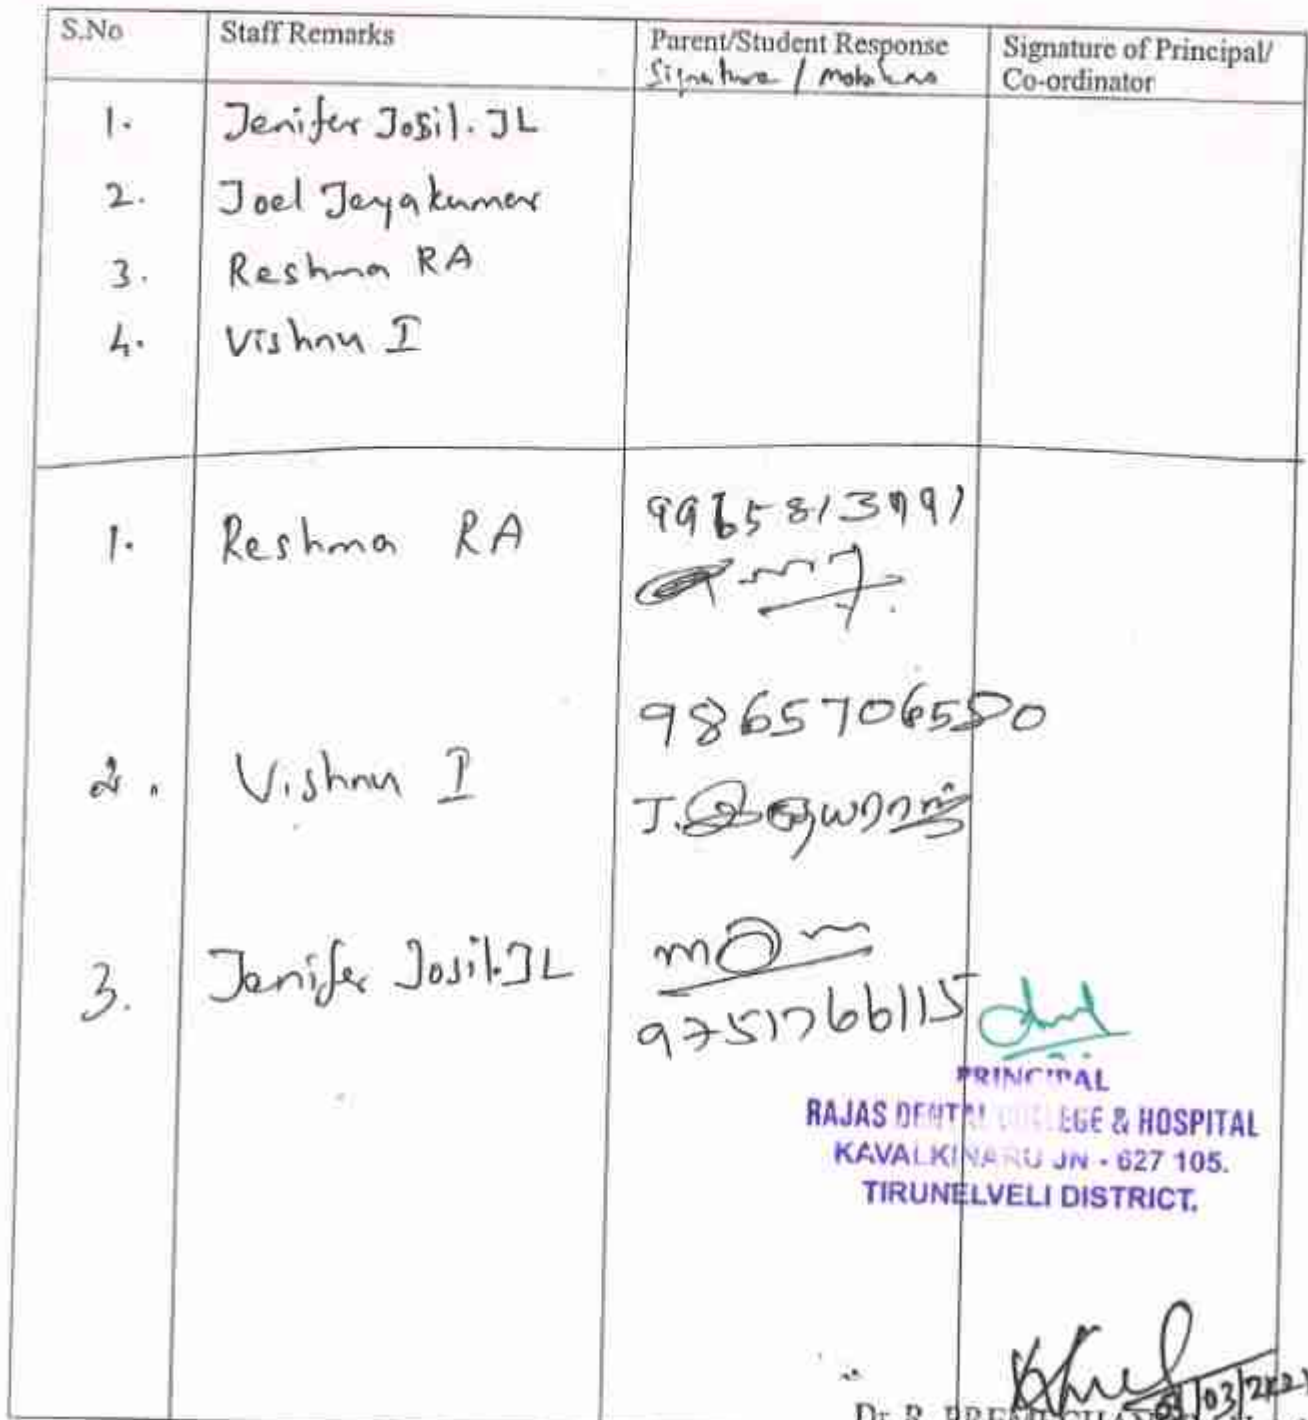 S.No Staff Remarks Parent/Student Response Signature of Principal/
Signature / Co-ordinator
1. Jenifer Josil. JL
2. Joel Jeyakumar
3. Reshma RA
4. Vishnu I
1. Reshma RA
9865706580
2. Vishnu I
J.
3. Jenifer Josil.JL
9751766115
PRINCIPAL
RAJAS DENTAL COLLEGE & HOSPITAL
KAVALKINARU JN - 627 105.
TIRUNELVELI DISTRICT.
Dr. R.